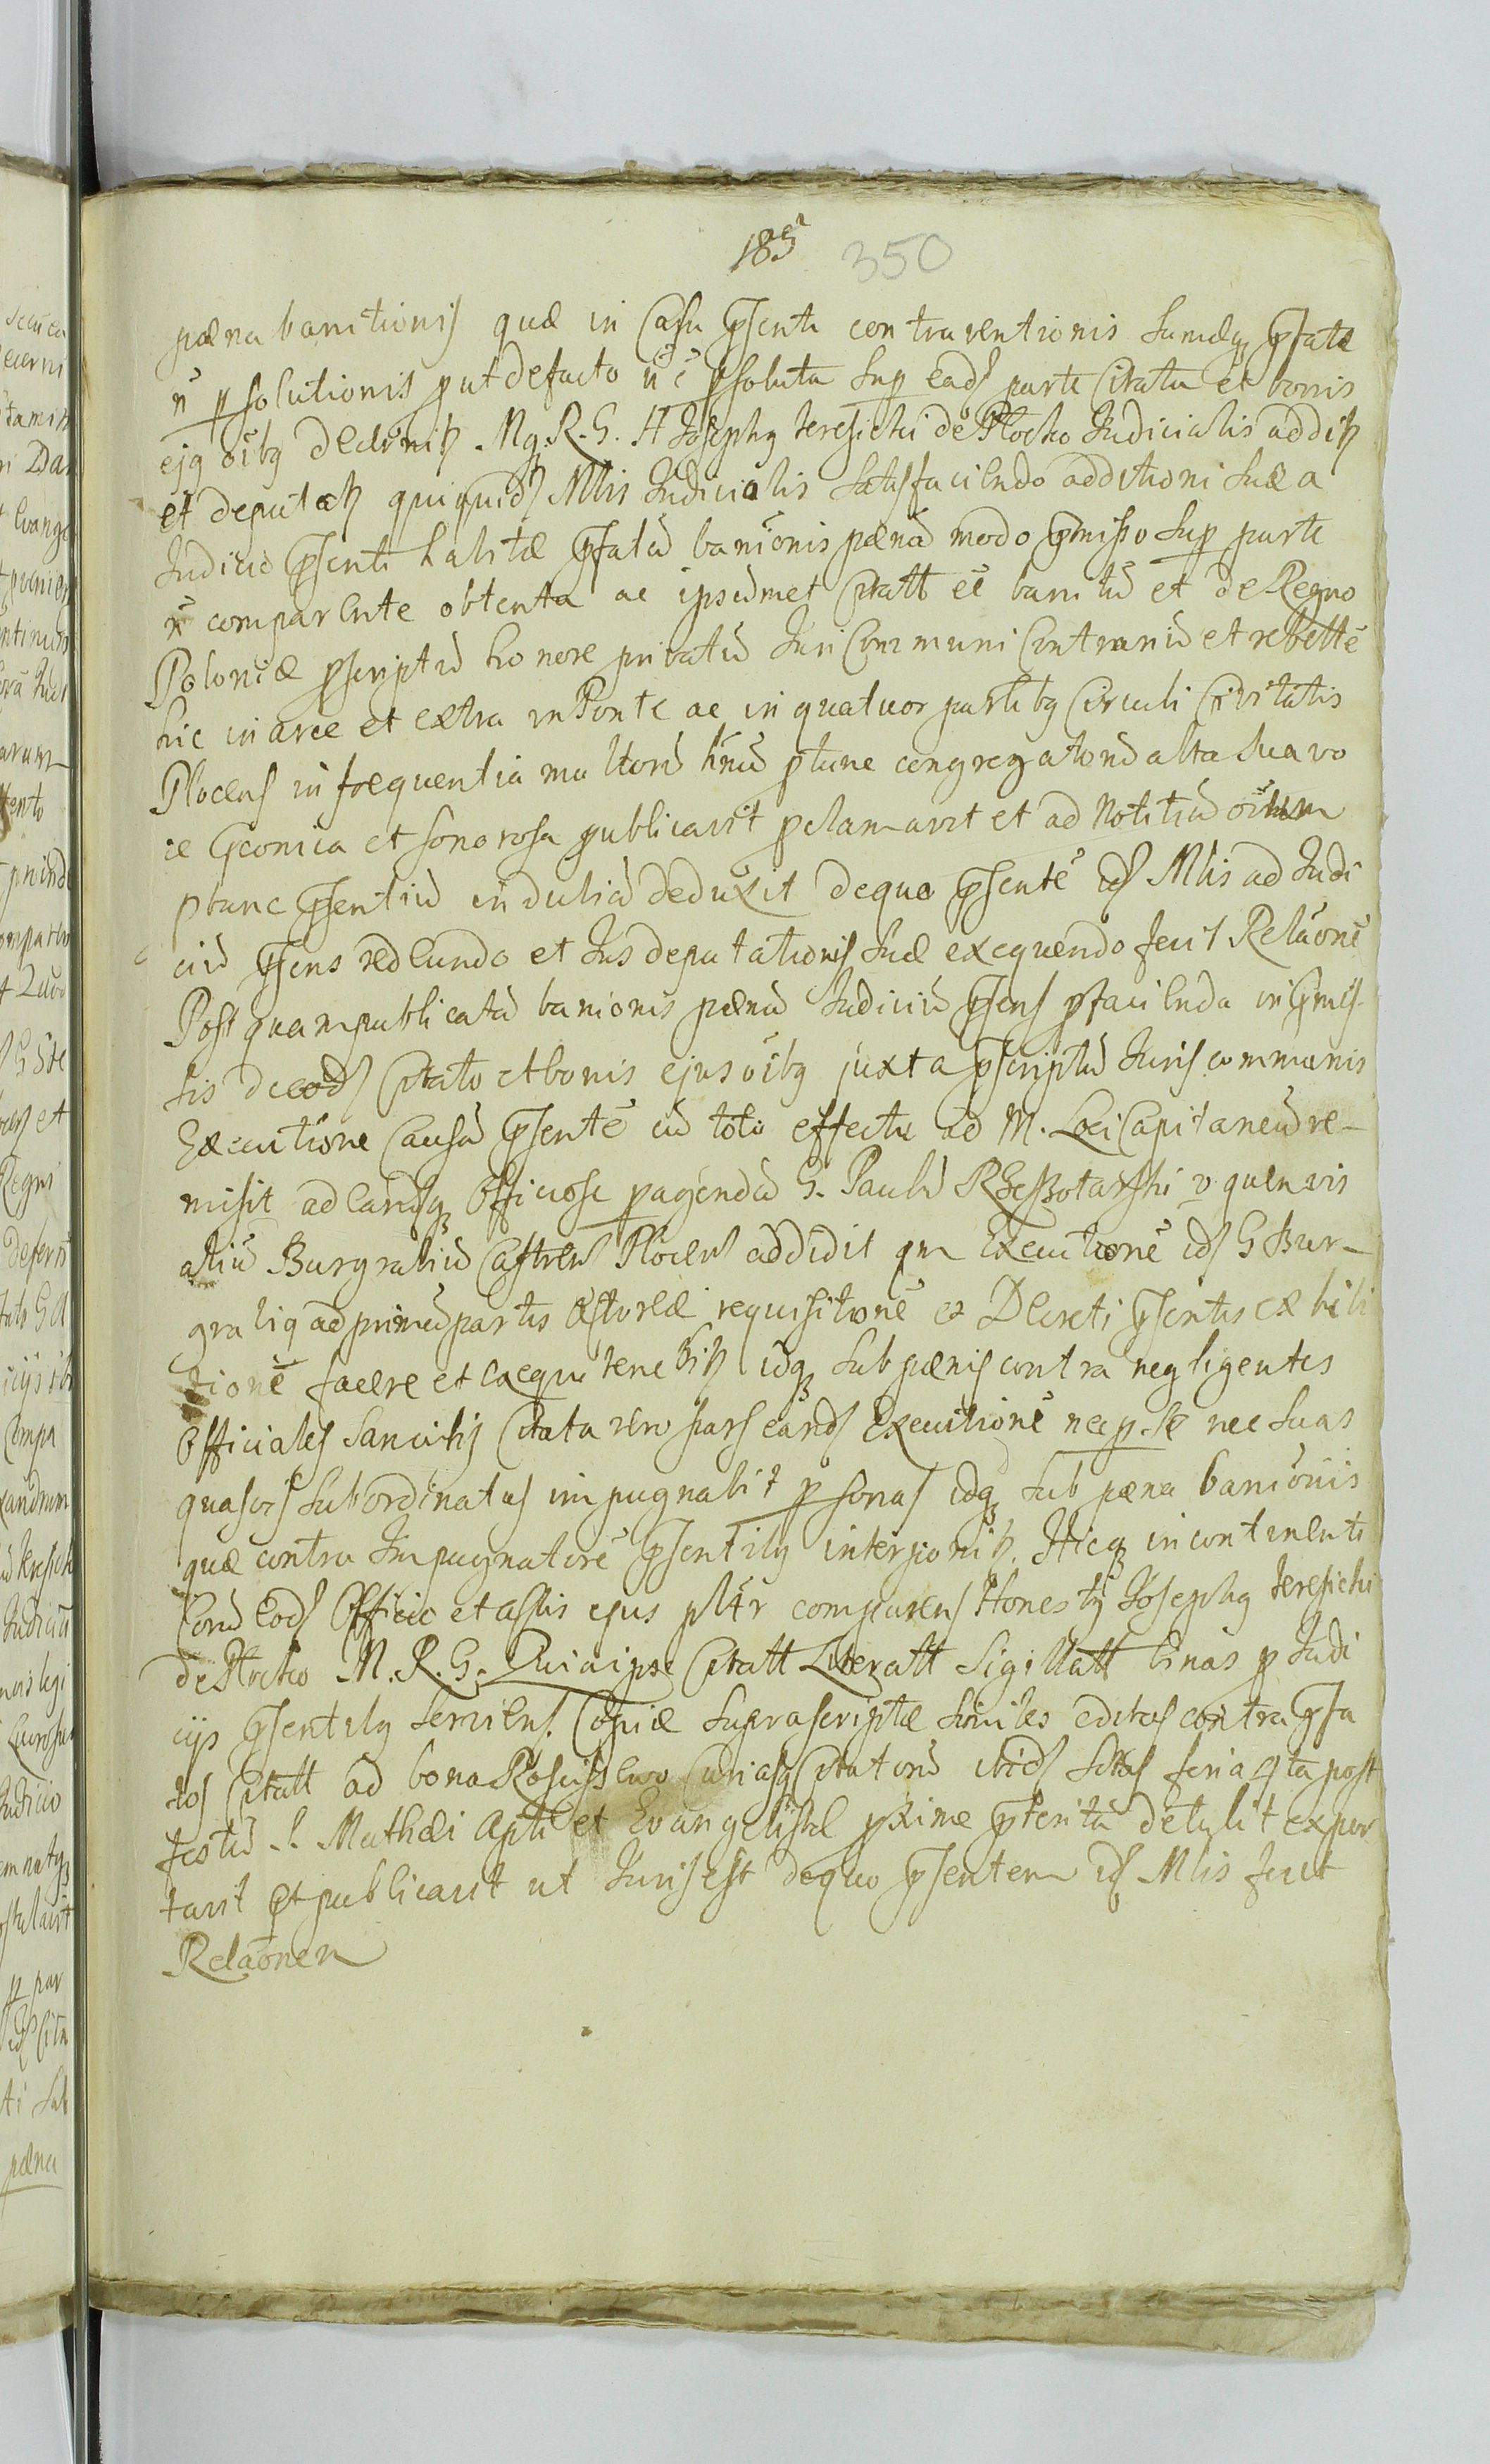 185
350
pæna banitionis quæ in Casu pſenti contraventionis Sumæq; pſatæ
n̄ pſolutionis put defacto n̄ ē pſoluta Sup eadſ parte Citata et bonis
ejq oibq decernitz. Mq. R. G. H Josephq teresicki de Plocko Judicialis additz
et deputatz qui quidſ Mlis Judicialis Satisfaciendo additioni Suæ a
Judicio pſenti habitæ pſatā banionis pænā modo pmisso Sup parte
n̄ comparente obtenta ac ipsummet Citatt eē banitū et de Regno
Poloniæ pscriptū honore privatū Juri Communi Contrariū et rebellē
hic in arce et extra in Ponte ac in quatuor partibq Circuli Civitatis
Plocenſ in frequentia multorū hn̄ū ptunc congregatorū alta sua vo
ce Geonica et Sonorosa publicavit pclamavit et ad notitiā oīum
ptunc pſentiū indubiā deduxit dequo pſentē idſ Mlis ad Judi
ciū pſens redeundo et Jus deputationis Suæ exequendo fecit Relaonē
Post quam publicatā banionis pænā Judiciū pſens pfaciendo in pmis
sis de eodſ Citato et bonis ejus oibq juxta pſcriptū Juris communis
Executione Causā pſentē cū toto effectu ad M. Loci Capitaneū re-
misit ad eandſq; Officiose pagendā G. Paulū RZeszotarski v. quenvis
aliū Burgrabiū Castrenſ Plocenſ addidit qm Executionē idſ G Bur-
grabiq ad primā partis Actoreæ requisitionē et Decreti pſentis exhibi
tionē facere et exequi tenebitz idq; Sub pænis contra negligentes
Officiales Sancitis Citata vero pars eandſ Executionē nec p Se nec Suas
quasvis Subordinatas impugnabit psonas idq; Sub pæna banionis
quæ contra Impugnatorē pſentibq interponitz. Hicq; incontinenti
Corā eodſ Officio et Actis ejus pltr comparenſ Honestq Josephq teresicki
de Plocko M. R. G. Quia ipse Citatt Literatt Sigillatt binas p Judi
ciis pſentibq Servienſ. Copiæ Suprascriptæ Similes editas contra pſa
tos Citatt ad bona Rosciszewo Curiasq Citatorū ibidſ Sitas feria 4ta post
festū S. Mathæi Apti et Evangelistæ pxime pteritā detulit expor
tavit et publicavit ut Juris est dequo pſentem idſ Mlis fecit
Relaonem